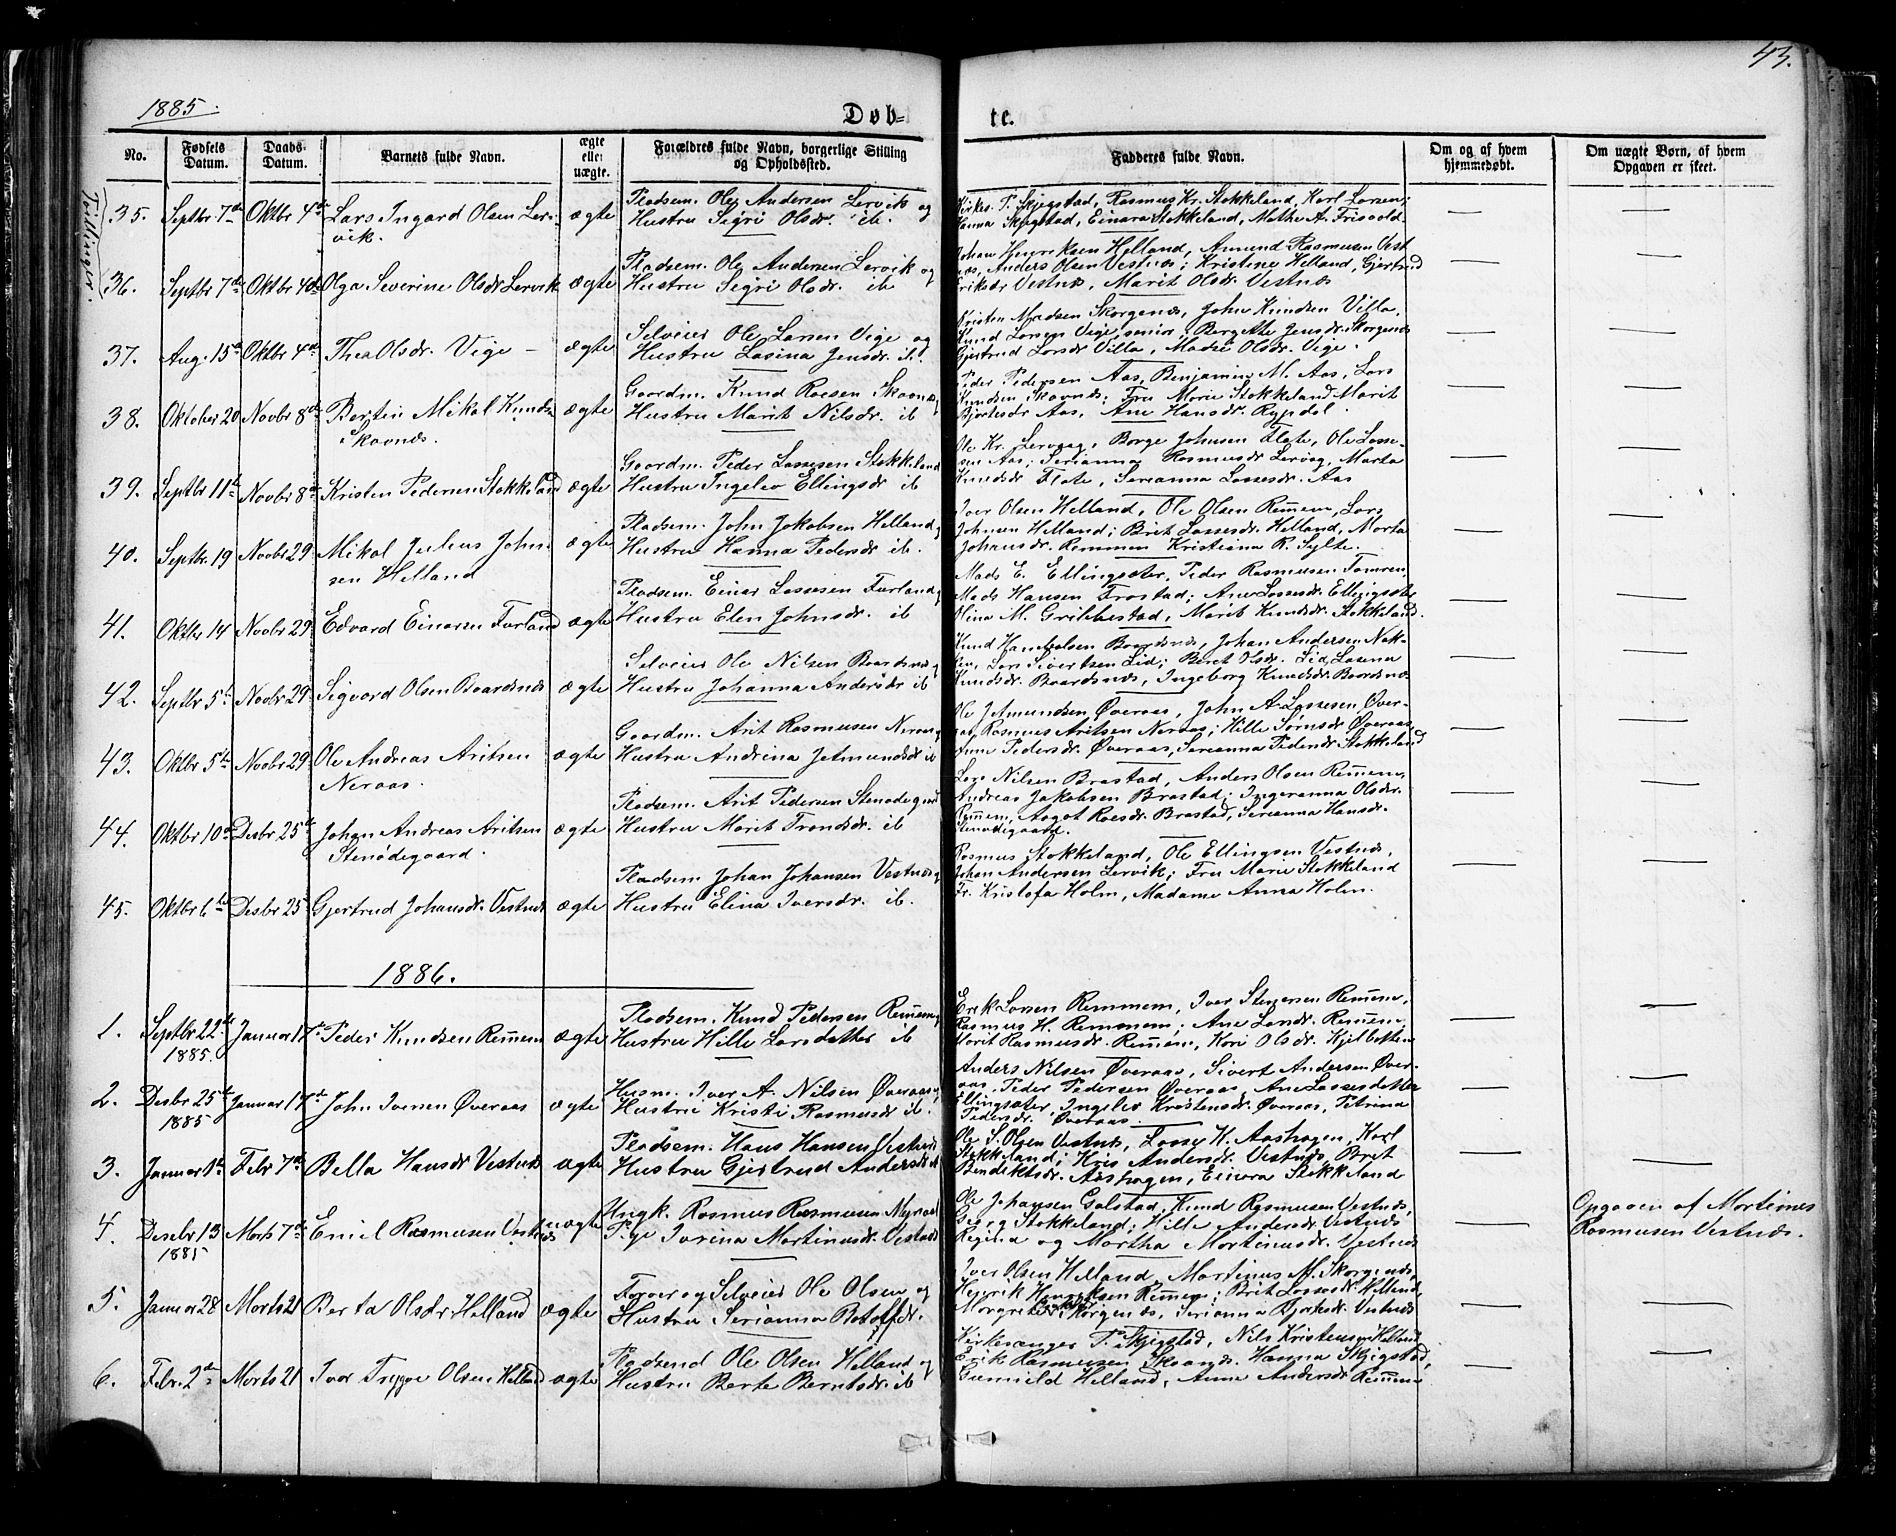 43.
1885.
Døb-
te.
No.
Fødsels Datum.
Daabs Datum.
Barnets fulde Navn.
ægte eller uægte.
Forældres fulde Navn, borgerlige Stilling og Opholdssted.
Fadderes fulde Navn.
Om og af hvem hjemmedøbt.
Om uægte Børn, af hvem Opgaven er skeet.
Tvillinger.
35. Septbr 7de Oktbr 4de Lars Ingard Olsen Ler- ægte Pladsm. Ole Andersen Lervik og
vik. Hustru Sigri Olsdr. ib.
Kirkes. T. Skjegstad, Rasmus Kr. Stokkeland, Karl Larsen;
Hanna Skjegstad, Einara Stokkeland, Mathe A. Frisvold.
36. Septbr 7de Oktbr 4de Olga Severine Olsdr Lervik ægte Pladsm. Ole Andersen Lervik og
Hustru Sigri Olsdr. ib
Johan Henriksen Helland, Amund Rasmusen Vest
næs, Anders Olsen Vestnæs; Kristine Helland, Gjertrud
Eriksdr Vestnæs, Marit Olsdr Vestnæs
37. Aug. 15de Oktbr 4de Thea Olsdr. Vige – ægte Selveier Ole Larsen Vige og
Hustru Lasina Jensdr. ib.
Kristen Madsen Skorgenæs, John Knudsen Villa,
Knud Larsen Vige senior; Bergitte Jensdr. Skorgenæs
Gjertrud Larsdr Villa, Madsi Olsdr. Vige.
38. Oktober 20 Novbr 8de Bertin Mikal Knuds- ægte Gaardm. Knud Roesen Skavnæs
Skavnæs. Hustru Marit Nilsdr. ib
Peder Pedersen Aas, Benjamin M. Aas, Lars
Knudsen Skavnæs; Fru Marie Stokkeland Marit
Bjertesdr Aas, Ane Hansdr. Rypdal.
39. Septbr 11te Novbr 8de Kristen Pedersen Stokkeland ægte Gaardm. Peder Lassesen Stokkeland
Hustru Ingelev Ellingsdr ib
Ole Kr. Lervaag, Børge Johnsen Flate, Ole Lasse-
sen Aas; Serianna Rasmusdr Lervag, Marta
Knudsdr Flate, Serianna Lassesdr. Aas
40. Septbr. 19 Novbr 29 Mikal Julius John- ægte Pladsm. John Jakobsen Helland
sen Helland Hustru Hanna Pedersdr ib.
Iver Olsen Helland, Ole Olsen Remem, Lars
Johnsen Helland; Brit Lassesdr. Helland, Marta
Johansdr. Remmem Kristiana R. Sylte.
41. Oktbr 14 Novbr 29 Edvard Einarsen Furland ægte Pladsm. Einar Lassesen Furland
Hustru Elen Johnsdr. ib
Mads E. Ellingsæter, Peder Rasmusen Tomren,
Mads Hansen Frostad; Ane Lassesdr. Ellingsæter
Olina M. Gribbestad, Marit Knudsdr. Stokkeland.
42. Septbr 5te Novbr 29 Sigvard Olsen Baardsnæs ægte Selveier Ole Nilsen Baardsnæs
Hustru Johanna Andersdr ib
Lars Sivertsen Lid; Beret Olsdr. Lid, Lasina
Knudsdr. Baardsnæs, Ingeborg Knudsdr. Baardsnæs
43. Oktbr 5te Novbr 29 Ole Andreas Aritsen ægte Gaardm. Arit Rasmusen Neraas
Neraas. Hustru Andrina Jetmundsdr ib
Ole Jetmundsen Øveraas, John A. Lassesen Øver-
aas, Rasmus Aritsen Neraas; Hille Sørnsdr Øveraas,
Anne Pedersdr. Øveraas, Serianna Pedersdr Stokkeland
44. Oktbr 10de Desbr 25de Johan Andreas Aritsen ægte Pladsm. Arit Pedersen Stenødegaard
Stenødegaard. Hustru Marit Trondsdr. ib
Lars Nilsen Brastad, Anders Olsen Remem,
Andreas Jakobsen Brastad; Ingeranna Olsdr.
Remem, Aagot Roesdr. Brastad, Serianna Hansdr.
Stenødegaard.
45. Oktbr 6te Desbr 25 Gjertrud Johansdr. Vestnæs ægte Pladsm Johan Johansen Vestnæs
Hustru Elina Iversdr. ib.
Rasmus Stokkeland, Ole Ellingsen Vestnæs,
Johan Andersen Lervik; Fru Marie Stokkeland
Fr. Kristofa Holm, Madame Anna Holm.
1886.
1. Septbr 22de 1885. Januar 17de Peder Knudsen Remem ægte Pladsm. Knud Pedersen Remem
Hustru Hille Larsdatter ib
Erik Larsen Remmem, Iver Stenersen Remem,
Rasmus H. Remmem; Ane Larsdr. Remem,
Marit Rasmusdr. Remem, Kari Olsdr. Kjelbotten
2. Desbr 25de 1885 Januar 17de John Iversen Øveraas ægte Husm. Iver A. Nilsen Øveraas
Hustru Kristi Rasmusdr ib.
Anders Nilsen Øveraas, Sivert Andersen Øver-
aas, Peder Pedersen Øveraas, Ane Lassesdatter
Ellingsæter, Ingelev Kristensdr. Øveraas, Petrina
Pedersdr. Øveraas.
3. Januar 1ste Febr 7de Bella Hansdr Vestnæs ægte Pladsm. Hans Hansen Vestnæs
Hustru Gjertrud Andersdr ib
Ole S. Olsen Vestnæs, Lasse H. Aashagen, Karl
Stokkeland; Kris Andersdr. Vestnæs, Brit
Bendiktsdr. Aashagen, Einara Stokkeland
4. Desbr 13 1885 Marts 7de Emil Rasmusen Vestnæs uægte Ungk. Rasmus Rasmusen Myrvold
Pige Ivrina Martinusdr. Vestnæs
Ole Johansen Galstad, Knud Rasmusen Vestnæs,
Georg Stokkeland; Hille Andersdr. Vestnæs
Regina og Martha Martinusdr. Vestnæs
Opgaven af Martines
Rasmusen Vestnæs.
5. Januar 28 Marts 21 Berta Olsdr Helland ægte Farver og Selveier Ole Olsen og
Hustru Serianna Botolfsdr.
Iver Olsen Helland, Martinus M. Skorgenæs,
Henrik Henriksen Remem; Brit Lassesdr. Helland,
Margrete Skorgenæs, Serianna Vestnæs
6. Febr. 2den Marts 21 Ivar Trygve Olsen Helland ægte Pladsmd Ole Olsen Helland og
Hustru Berte Berntsdr. ib
Kirkesanger T. Skjegstad, Nils Kristensen Helland
Erik Rasmusen Skaanæs. Hanna Skjegstad,
Gunhild Helland, Anne Andersdr Remem